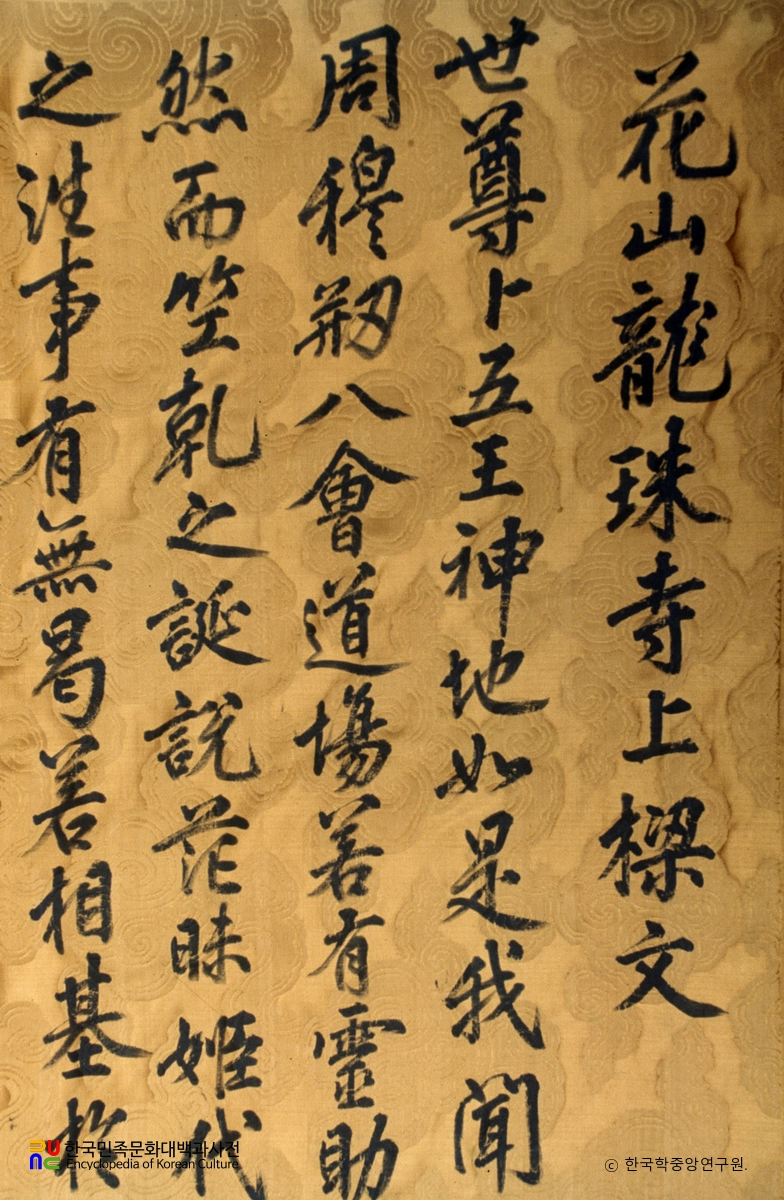 花山龍珠寺上樑文
世尊卜五王神地如是我聞
周穆刱八會道場若有靈助
然而竺乾之誕說茫昧姬代
之往事有無曷若相基於
한국민족문화대백과사전
Encyclopedia of Korean Culture
ⓒ 한국학중앙연구원.